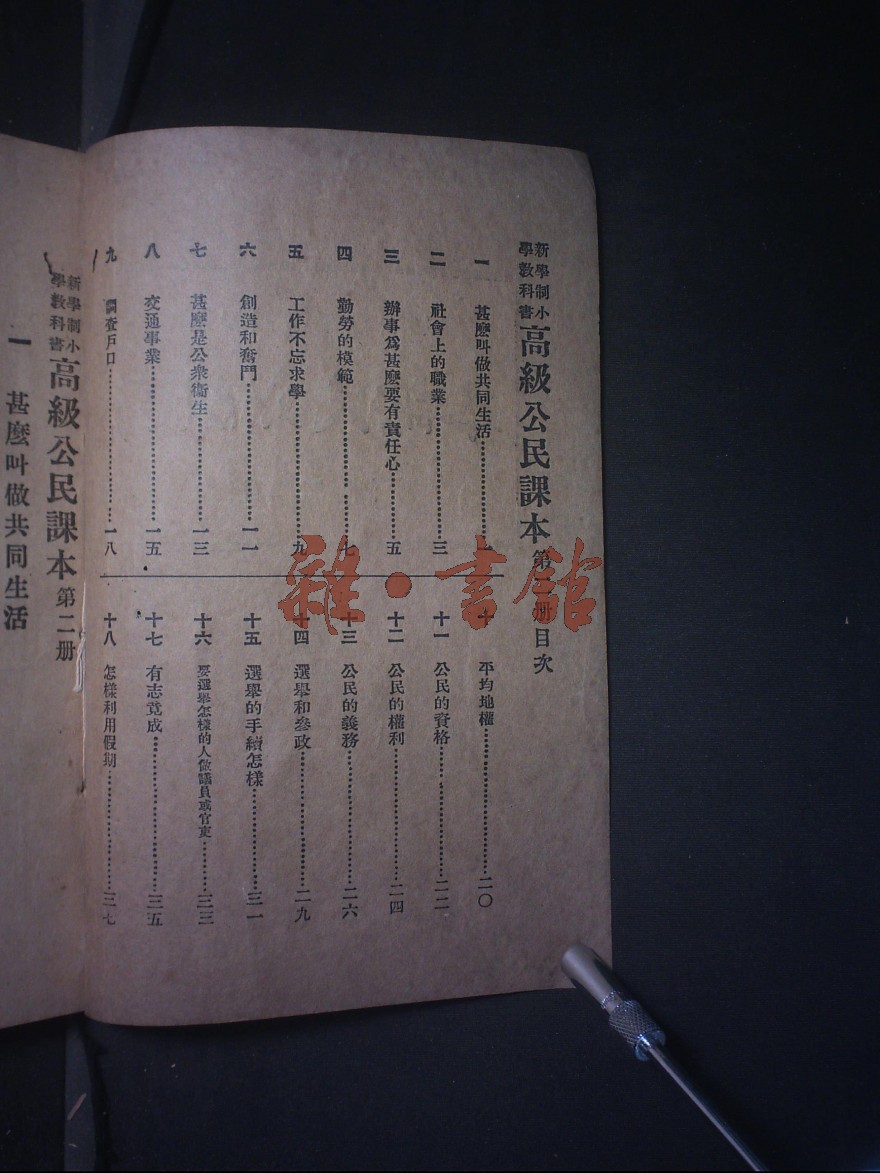 新學制小
學教科書
高級公民課本 第二册目次
一 甚麽叫做共同生活 一
二 社會上的職業 三
三 辦事爲甚麽要有責任心 五
四 勤勞的模範 七
五 工作不忘求學 九
六 創造和奮鬥 一一
七 甚麽是公衆衞生 一三
八 交通事業 一五
九 調查戶口 一八
十 平均地權 二〇
十一 公民的資格 二二
十二 公民的權利 二四
十三 公民的義務 二六
十四 選舉和參政 二九
十五 選舉的手續怎樣 三一
十六 要選舉怎樣的人做議員或官吏 三三
十七 有志竟成 三五
十八 怎樣利用假期 三七
新學制小
學教科書
高級公民課本 第二册
一 甚麽叫做共同生活
雜·書館